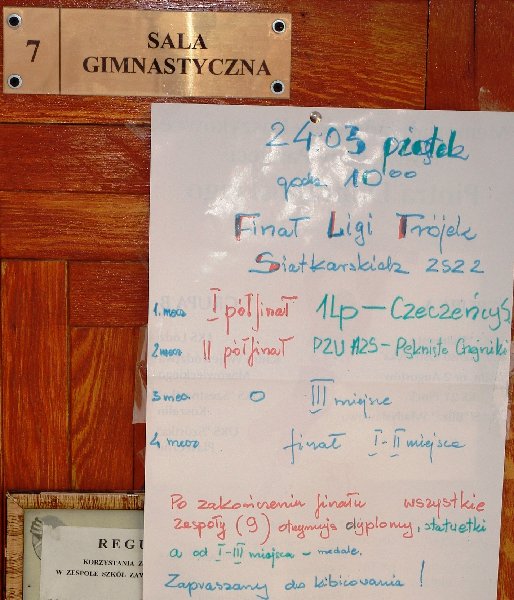 7
SALA
GIMNASTYCZNA
24.03 piątek
godz. 10⁰⁰
Finał Ligi Trójek
Siatkarskich ZSZ 2
1. mecz I półfinał 1Lp – Czeczeńcy S.
2 mecz II półfinał PZU AZS – Pęknięte Chojniki
3 mecz o III miejsce
4 mecz finał I-II miejsca
Po zakończeniu finału wszystkie
zespoły (9) otrzymują dyplomy, statuetki
a od I-III miejsca – medale.
Zapraszamy do kibicowania !
REGU
KORZYSTANIA Z
W ZESPOLE SZKÓŁ ZAW